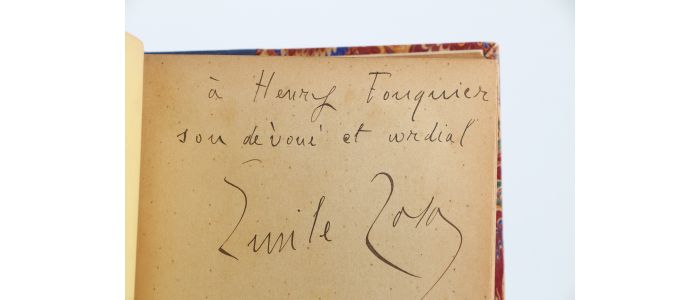 à Henry Fouquier
son dévoué et cordial
Emile Zola